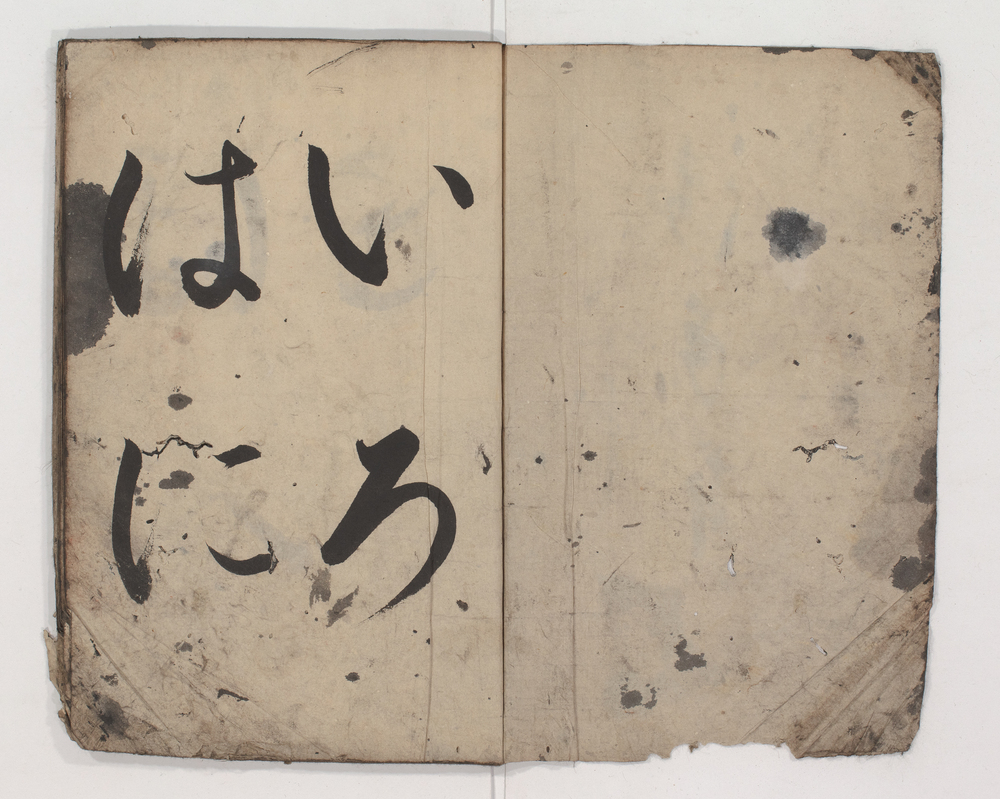 いろ
はに